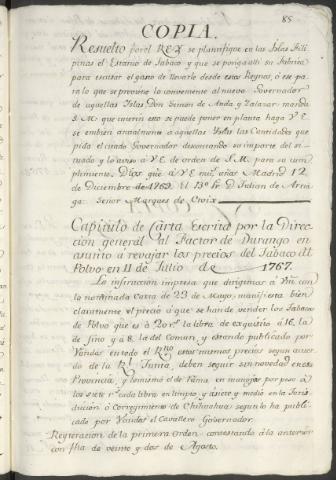 85
COPIA.
Resuelto por el REY se plantifique en las Islas Fili
pinas el Estanco de Tabaco y que se ponga alli su Fabrica
para escusar el gasto de llevarle desde estos Reynos, ô ese pa
ra lo que se previene lo conveniente al nuevo Governador
de aquellas Islas Don Simon de Anda y Zalazar manda
S.M. que interin esto se puede poner en planta haga V.E.
se embien anualmente a aquellas Yslas las Cantidades que
pida el citado Governador descontando su importe del si
tuado y lo aviso à V.E. de orden de S.M. para su cum
plimiento. Dios gue à V.E. mus. años Madrid 12
de Diciembre de 1769. El Bo. Fr. Dn. Julian de Arria
ga. Señor Marques de Croix
Capitulo de Carta Escrita por la Direc
ción general al Factor de Durango en
asunto a revajar los precios del Tabaco de
Polvo en 11 de Julio de 1767.
La instrucion impresa que dirigimos à Vm. con
la nominada Carta de 23 de Mayo, manifiesta bien
claramente el precio a que se han de vender los Tabacos
de Polvo que es à 20 rs. la libra de exquisito à 16. la
de fino y a 8. la del Comun, y estando publicado por
Vandos en todo el Rno. estos mismos precios segun acuer
do de la Rl. Junta, deben seguir sin novedad en esa
Provincia, y lo mismo el de Rama, en manojos por peso à
los siete rs. cada libra en limpio, y à siete y medio en la Juris
dicion ô Corregimiento de Chihuahua segun lo ha publi
cado por Vandos el Cavallero Governador.
Reyteracion de la primera Orden contestando á la anterior
con fha de veinte y dos de Agosto.